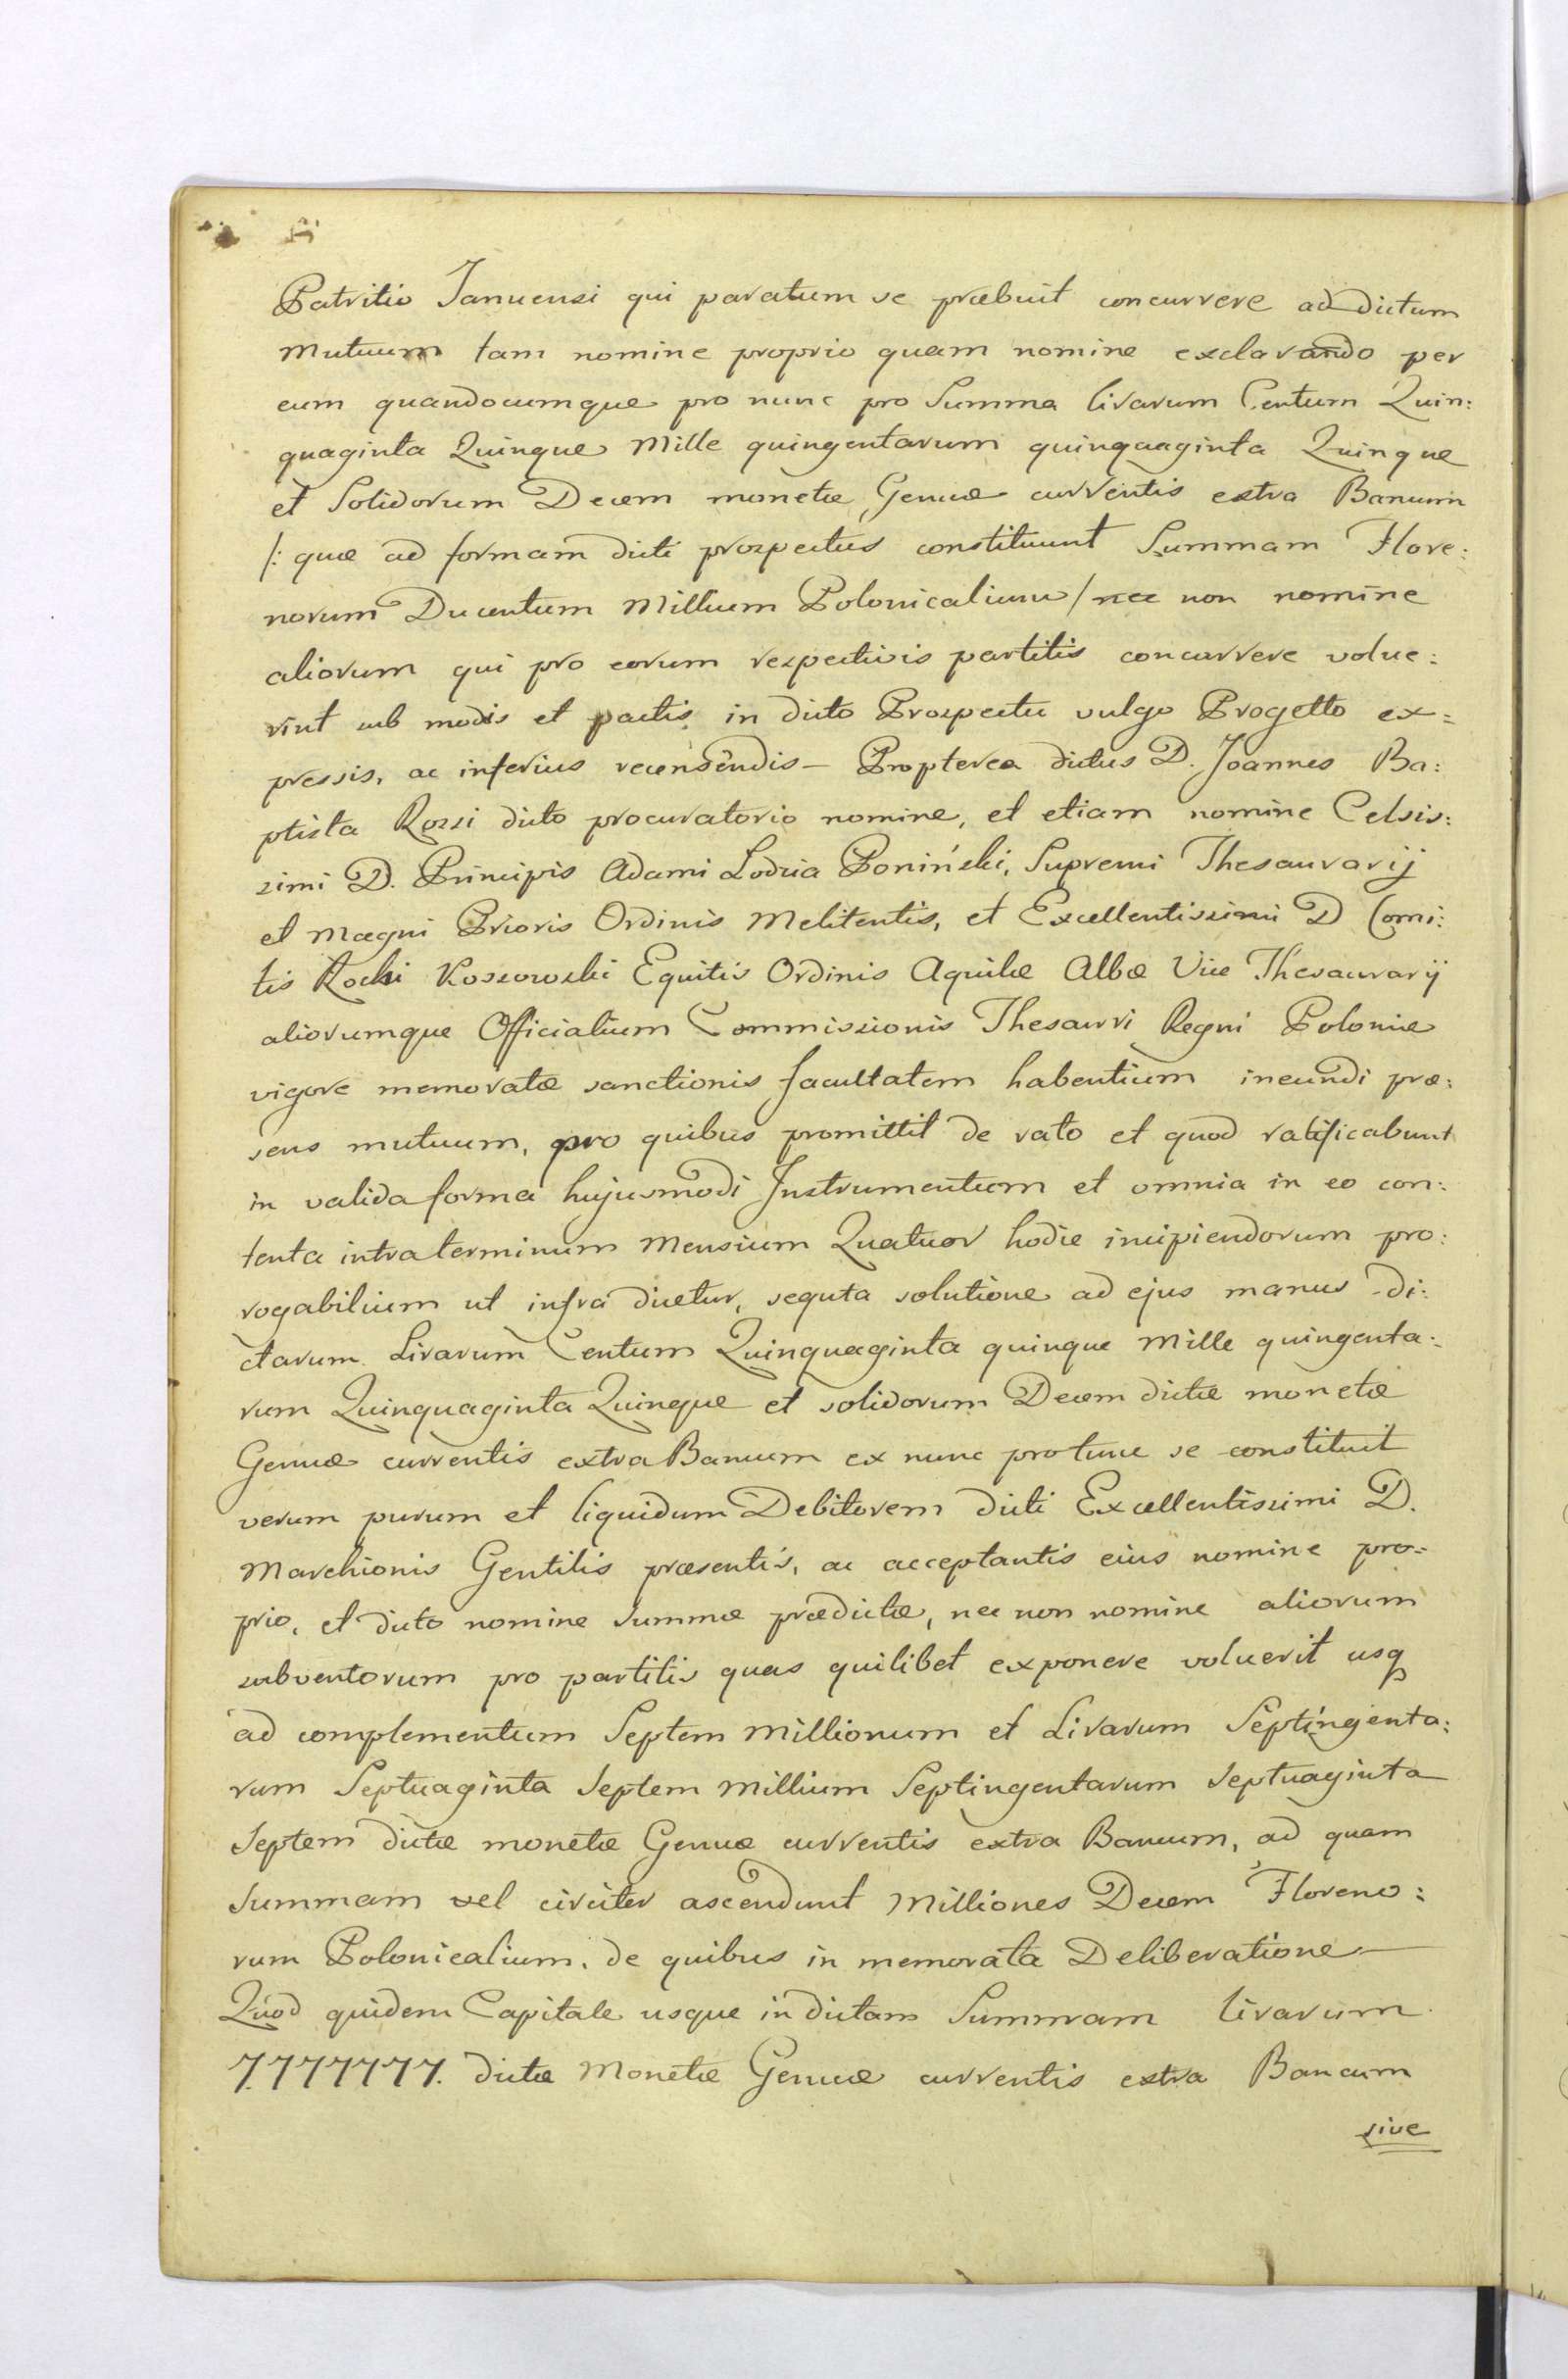 Patritio Januensi qui paratum se præbuit concurrere ad dictum
Mutuum tam nomine proprio quam nomine exclarando per
eum quandocumque pro nunc pro Summa livarum Centum Quin:
quaginta Quinque Mille quingentarum quinquaginta Quinque
et Solidorum Decem monetæ Genuæ currentis extra Bancum
/: quæ ad formam dicti prospectus constituunt Summam Flore:
norum Ducentum Millium Polonicalium / nec non nomine
aliorum qui pro eorum respectivis partitis concurrere volue:
rint sub modis et pactis in dicto Prospectu vulgo Progetto ex=
pressis, ac inferius recensendis — Propterea dictus D. Joannes Ba:
ptista Rossi dicto procuratorio nomine, et etiam nomine Celsis:
simi D. Principis Adami Lodzia Poniński, Supremi Thesaurarij
et Magni Prioris Ordinis Melitentis, et Excellentissimi D Comi:
tis Rochi Kossowski Equitis Ordinis Aquilæ Albæ Vice Thesaurarij
aliorumque Officialium Commissionis Thesauri Regni Poloniæ
vigore memoratæ sanctionis facultatem habentium ineundi præ:
sens mutuum, pro quibus promittit de rato et quod ratificabunt
in valida forma hujusmodi Instrumentum et omnia in eo con:
tenta intra terminum Mensium Quatuor hodie incipiendorum pro:
rogabilium ut infra dicetur, sequta solutione ad ejus manus di:
ctarum Livarum Centum Quinquaginta quinque Mille quingenta:
rum Quinquaginta Quinque et solidorum Decem dictæ monetæ
Genuæ currentis extra Bancum ex nunc pro tunc se constituit
verum purum et liquidum Debitorem dicti Excellentissimi D.
Marchionis Gentilis præsentis, ac acceptantis eius nomine pro=
prio, et dicto nomine Summæ prædictæ, nec non nomine aliorum
subventorum pro partitis quas quilibet exponere voluerit usq
ad complementum Septem Millionum et Livarum Septingenta:
rum Septuaginta Septem Millium Septingentarum Septuaginta
Septem dictæ monetæ Genuæ currentis extra Bancum, ad quam
Summam vel circiter ascendunt Milliones Decem Floreno:
rum Polonicalium, de quibus in memorata Deliberatione —
Quod quidem Capitale usque in dictam Summam livarum
7.777777. dictæ Monetæ Genuæ currentis extra Bancum
sive